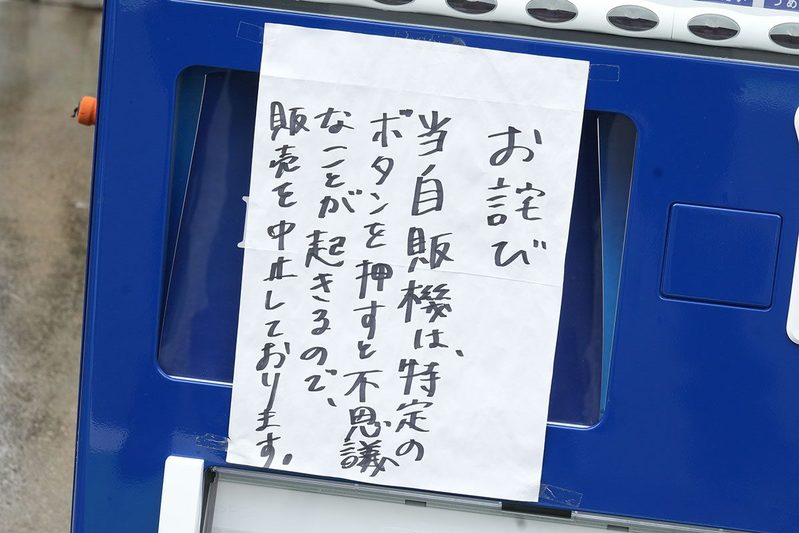 お詫び
当自販機は、特定の
ボタンを押すと不思議
なことが起きるので、
販売を中止しております。